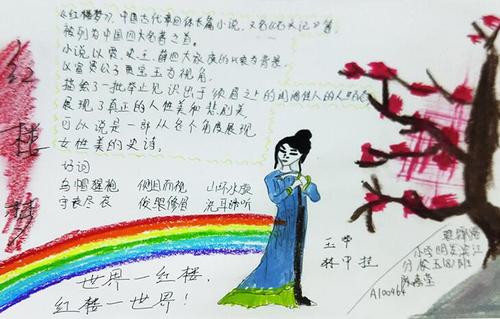 红楼梦
《红楼梦》，中国古代章回体长篇小说，又名《石头记》等，
被列为中国四大名著之首。
小说以贾、史、王、薛四大家族的兴衰为背景，
以富贵公子贾宝玉为视角，
描绘了一批举止见识出于须眉之上的闺阁佳人的人生百态
展现了真正的人性美和悲剧美
可以说是一部从各个角度展现
女性美的史诗。
好词
乌帽猩袍 侧目而视 山环水旋
守丧尽哀 俊眼修眉 洗耳聆听
世界一红楼，
红楼一世界！
玉带
林中挂
小学明英滨江
分校五(8)班
A100464